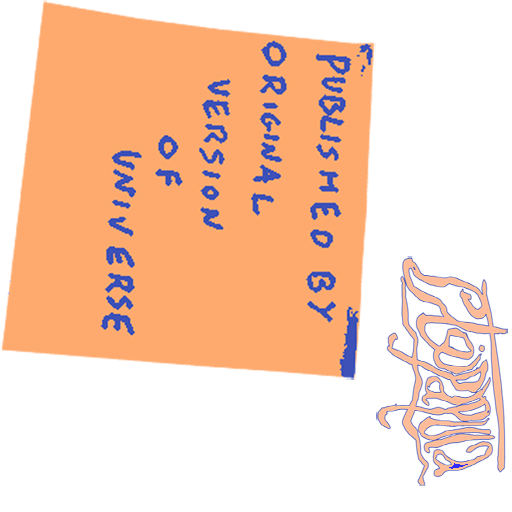 PUBLISHED BY
ORIGINAL
VERSION
OF
UNIVERSE